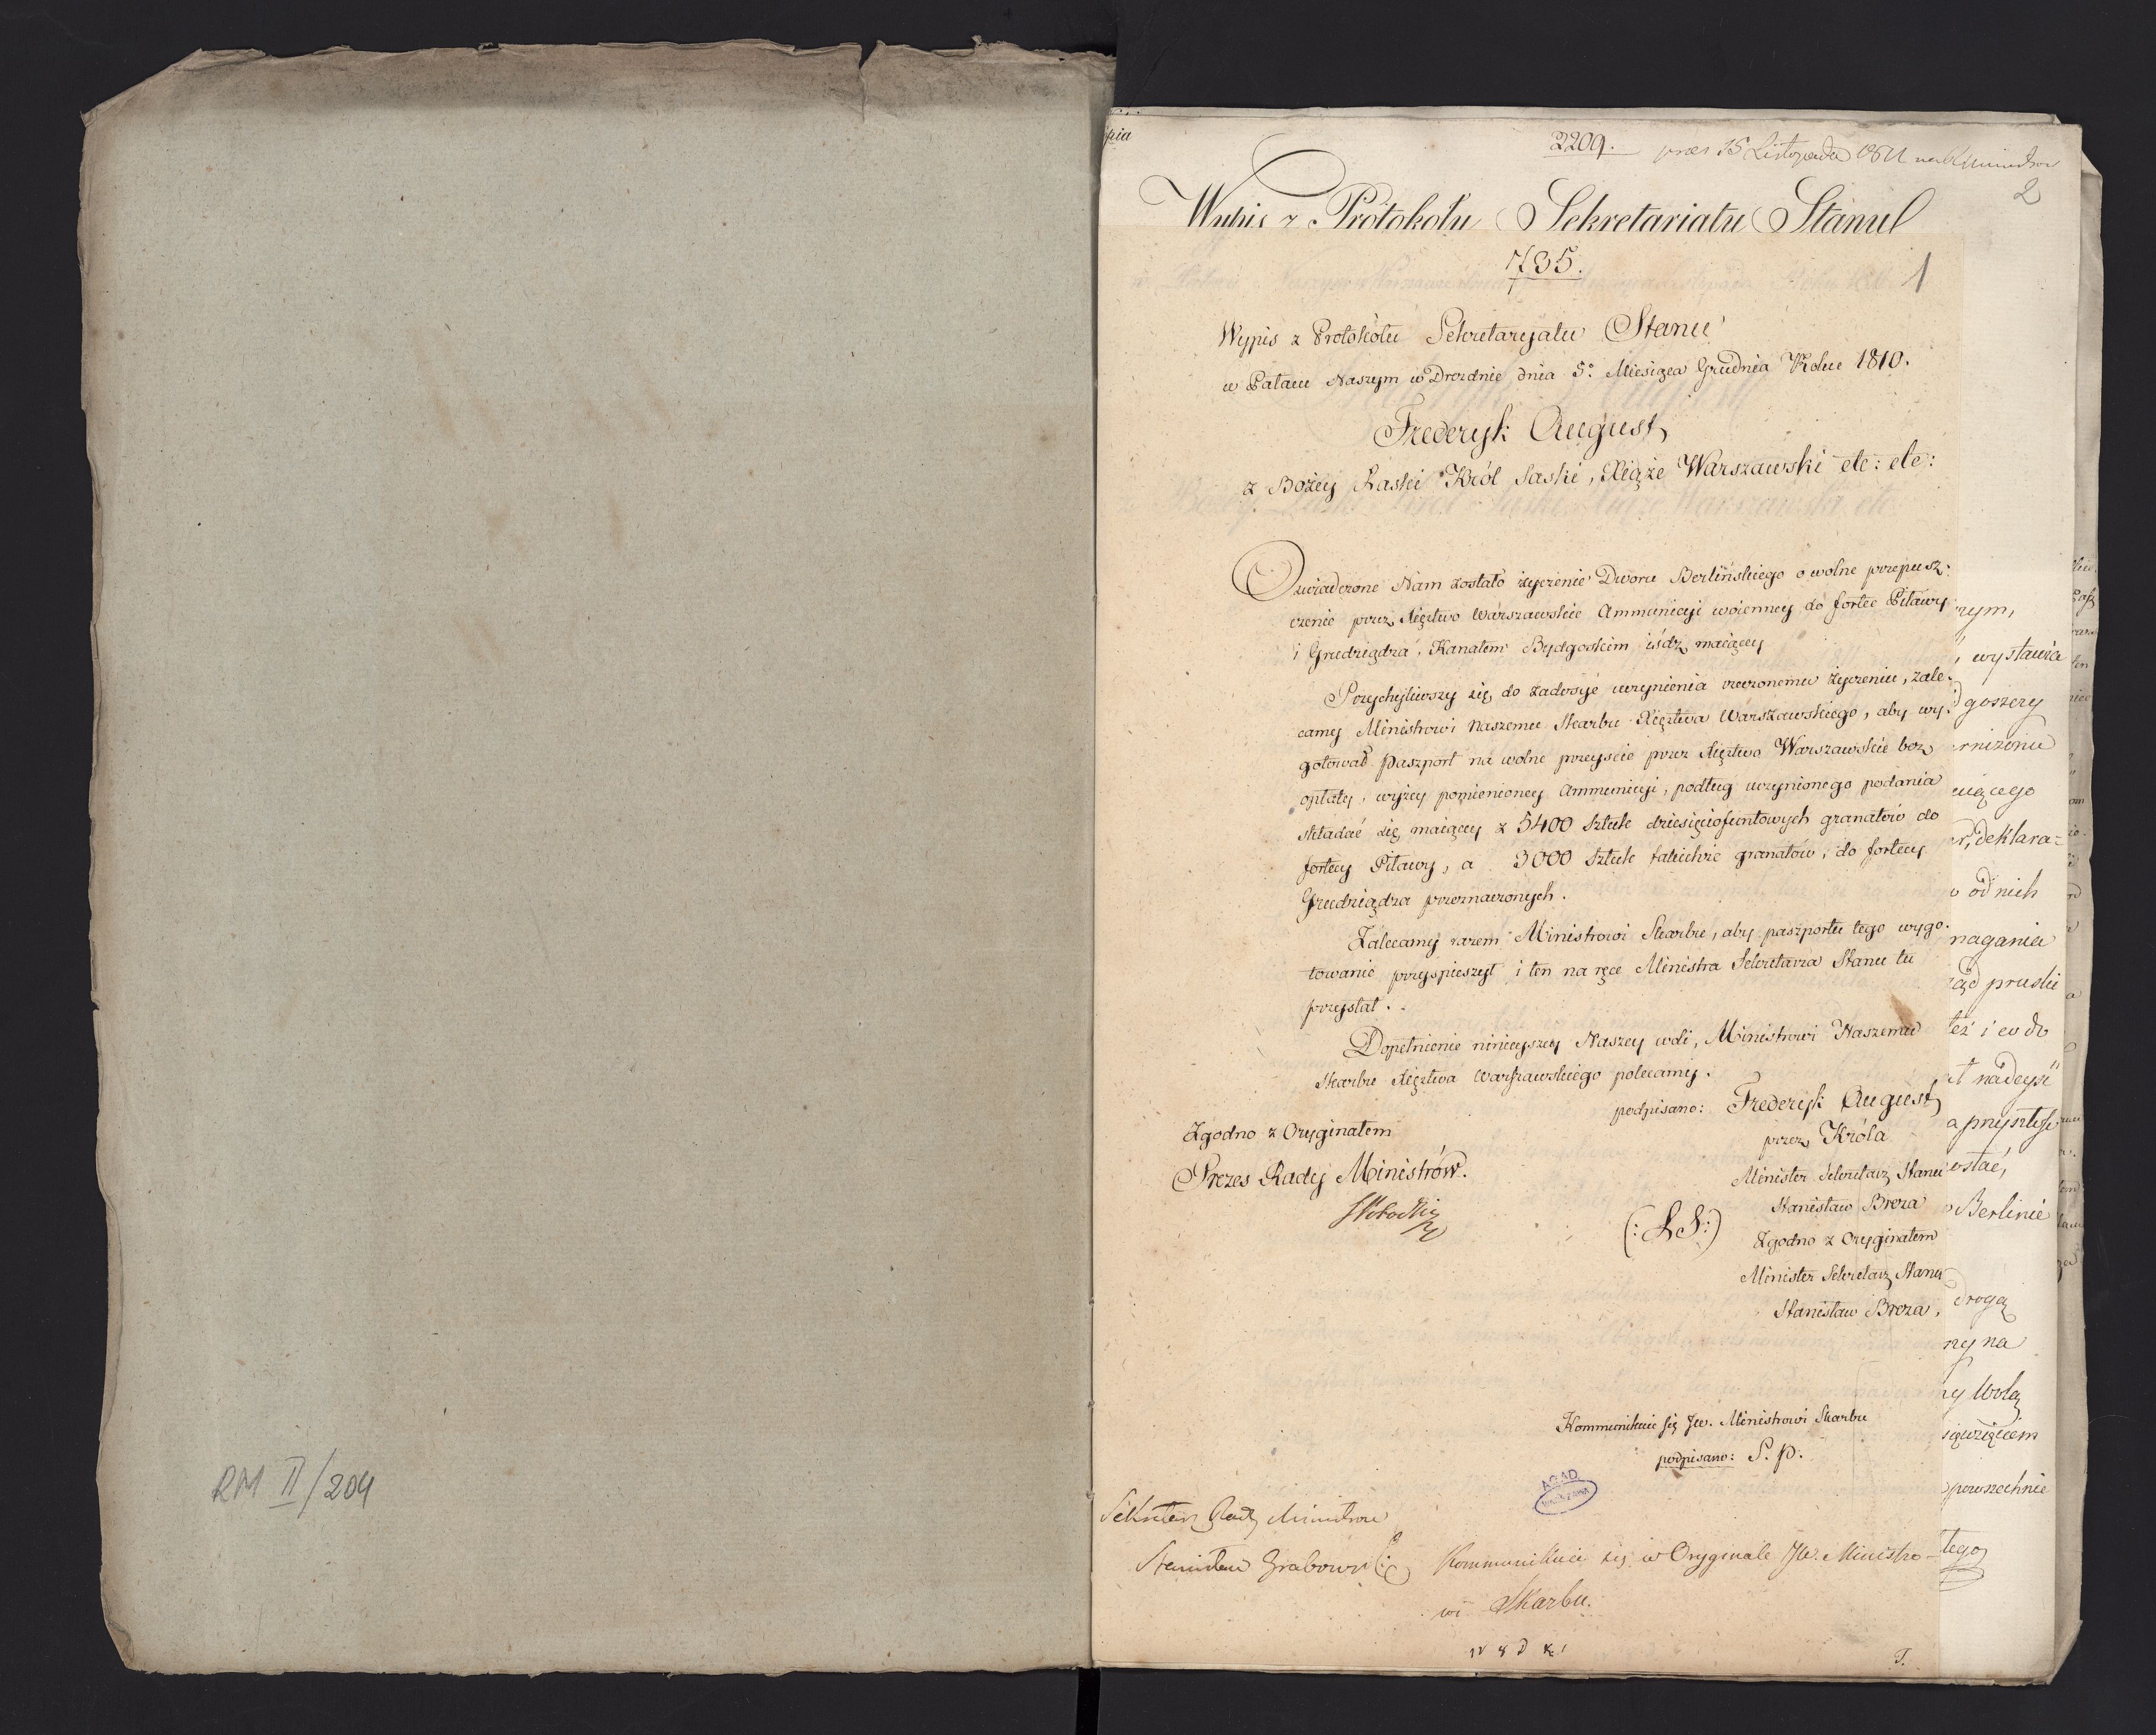 RM II/204
pia
2209.
prez 15 Listopada 1811
2
Wypis z Protokołu Sekretariatu Stanu
735.
1
Wypis z Protokółu Sekretaryatu Stanu
w Pałacu Naszym w Dreznie dnia 5º Miesiąca Grudnia Roku 1810.
Frederyk August
z Bożey Łaski Król Saski, Xiąże Warszawski etc: etc:
Oświadczone Nam zostało życzenie Dworu Berlińskiego o wolne przepusz-
czenie przez Xięztwo Warszawskie Ammunicyi woienney do fortec Pilawy
i Grudziądza, Kanałem Bydgoskim iśdz maiącey
Przychyliwszy się do zadosyć uczynienia rzeczonemu życzeniu, zale-
camy Ministrowi Naszemu Skarbu Xięztwa Warszawskiego, aby wy-
gotował paszport na wolne przeyscie przez Xięztwo Warszawskie bez
opłaty, wyżey pomienioney Ammunicyi, podług uczynionego podania
składać się maiącey z 5400 sztuk dziesięciofuntowych granatów do
fortecy Pilawy, a 3000 sztuk takichże granatów, do fortecy
Grudziądza przeznaczonych.
Zalecamy razem Ministrowi Skarbu, aby paszportu tego wygo-
towanie przyspieszył i ten na ręce Ministra Sekretarza Stanu tu
przysłał.
Dopełnienie ninieyszey Naszey woli, Ministrowi Naszemu
Skarbu Xięztwa Warszawskiego polecamy.
podpisano: Frederyk August
przez Króla
Minister Sekretarz Stanu
Stanisław Breza
Zgodno z Oryginałem
Prezes Rady Ministrów.
(: L S :)
Zgodno z Oryginałem
Minister Sekretarz Stanu
Stanisław Breza,
Kommunikuie się JW. Ministrowi Skarbu
podpisano: S. P.
AGAD
WARSZAWA
Sekretarz Rady Ministrow
Stanisław Grabowski
Kommunikuie się w Oryginale JW. Ministro-
wi Skarbu.
T.
rym,
, wystawia
goszczy
rniżoniu
uiącego
er, deklara=
o od nich
magania
rząd pruski
też i co do
t nadeyść
a przyszłe
ostać,
Berlinie
drogą
ny na
y Wolą
sięwzięciem
powszechnie
tego